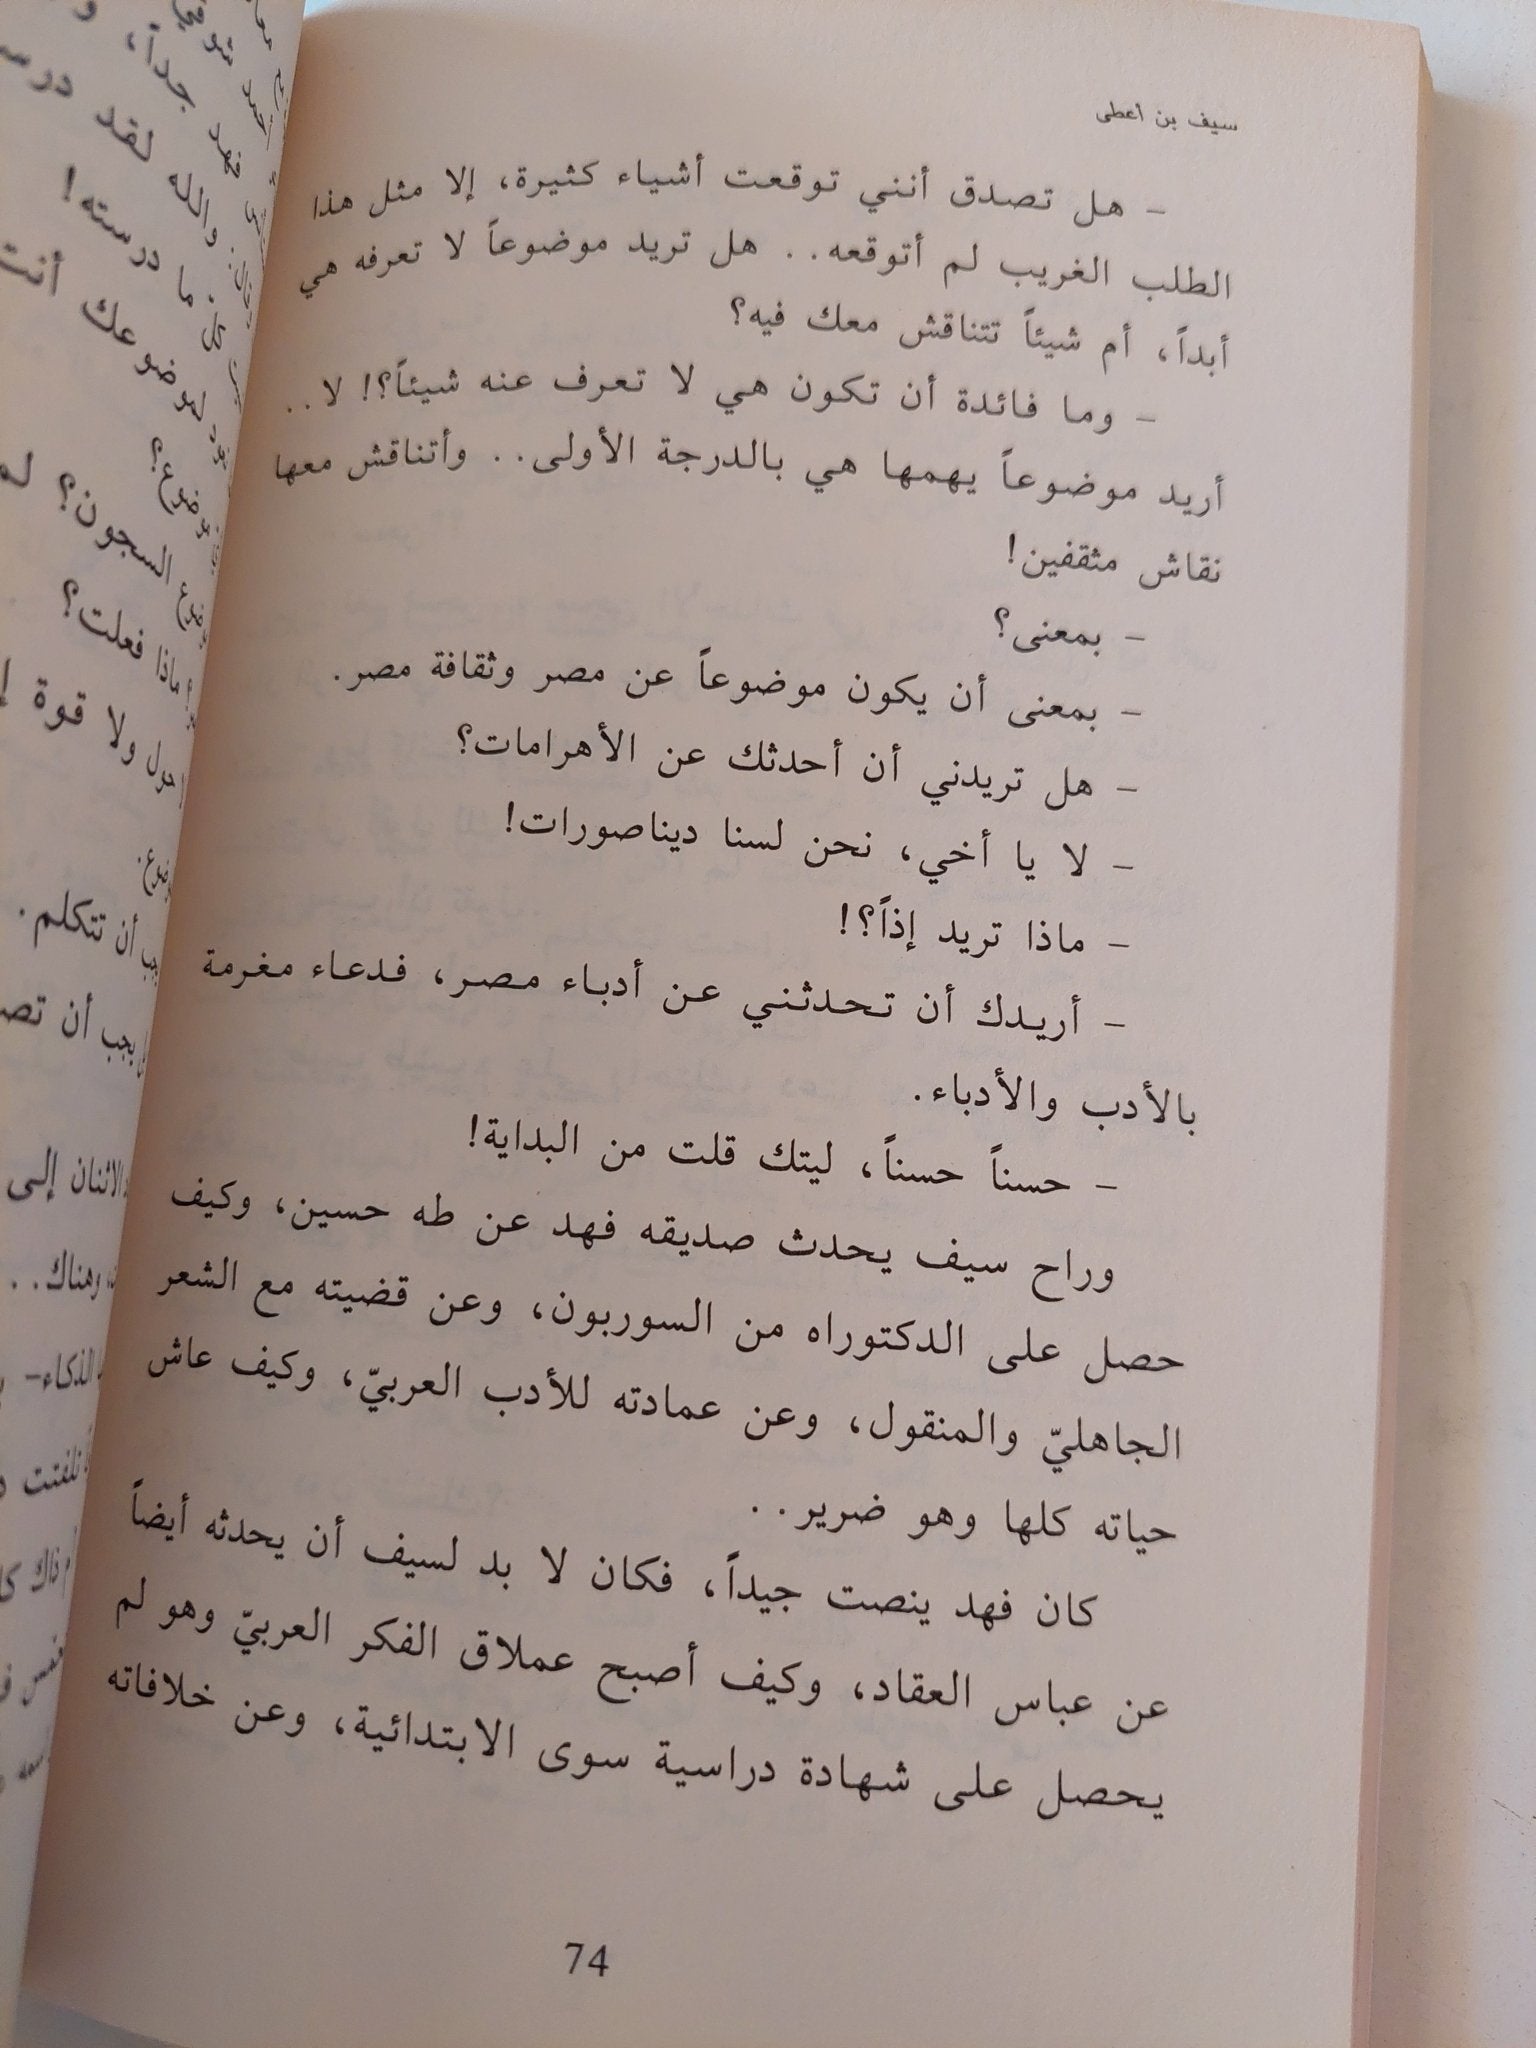 سيف بن اعطى
- هل تصدق أنني توقعت أشياء كثيرة، إلا مثل هذا
الطلب الغريب لم أتوقعه.. هل تريد موضوعاً لا تعرفه هي
أبداً، أم شيئاً تتناقش معك فيه؟
- وما فائدة أن تكون هي لا تعرف عنه شيئاً؟! لا..
أريد موضوعاً يهمها هي بالدرجة الأولى.. وأتناقش معها
نقاش مثقفين!
- بمعنى؟
- بمعنى أن يكون موضوعاً عن مصر وثقافة مصر.
- هل تريدني أن أحدثك عن الأهرامات؟
- لا يا أخي، نحن لسنا ديناصورات!
- ماذا تريد إذاً؟!
- أريدك أن تحدثني عن أدباء مصر، فدعاء مغرمة
بالأدب والأدباء.
- حسناً حسناً، ليتك قلت من البداية!
وراح سيف يحدث صديقه فهد عن طه حسين، وكيف
حصل على الدكتوراه من السوربون، وعن قضيته مع الشعر
الجاهليّ والمنقول، وعن عمادته للأدب العربيّ، وكيف عاش
حياته كلها وهو ضرير..
كان فهد ينصت جيداً، فكان لا بد لسيف أن يحدثه أيضاً
عن عباس العقاد، وكيف أصبح عملاق الفكر العربيّ وهو لم
يحصل على شهادة دراسية سوى الابتدائية، وعن خلافاته
74
جداً،
والله لقد
ما درسته!
لموضوعك أنت
السجون؟
ماذا فعلت؟
ولا قوة
أن تتكلم.
يجب أن
الاثنان إلى
وهناك..
الذكاء-